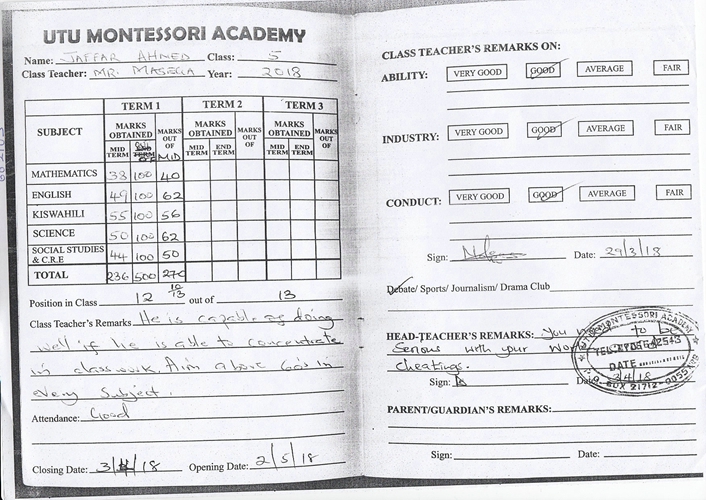 UTU MONTESSORI ACADEMY
Name: JAFFAR AHMED Class: 5
Class Teacher: MR. MASEGA Year: 2018
SUBJECT TERM 1 TERM 2 TERM 3
MARKS OBTAINED MARKS OUT OF MARKS OBTAINED MARKS OUT OF MARKS OBTAINED MARKS OUT OF
MID TERM MID MID TERM END TERM MID TERM END TERM
MATHEMATICS 38 100 40
ENGLISH 49 100 62
KISWAHILI 55 100 56
SCIENCE 50 100 62
SOCIAL STUDIES & C.R.E 44 100 50
TOTAL 236 500 270
Position in Class 12 out of 13
10/13
Class Teacher's Remarks He is capable of doing
well if he is able to concentrate
in classwork. Aim above 60s in
every subject.
Attendance: Good
Closing Date: 3/4/18 Opening Date: 2/5/18
CLASS TEACHER'S REMARKS ON:
ABILITY: VERY GOOD GOOD AVERAGE FAIR
INDUSTRY: VERY GOOD GOOD AVERAGE FAIR
CONDUCT: VERY GOOD GOOD AVERAGE FAIR
Sign: Date: 29/3/18
Debate/ Sports/ Journalism/ Drama Club
HEAD-TEACHER'S REMARKS: You to be
Serious with your work
cheatings.
Sign: Date: 3/4/18
MONTESSORI ACADEMY
DATE
BOX 21712-00
PARENT/GUARDIAN'S REMARKS:
Sign: Date: